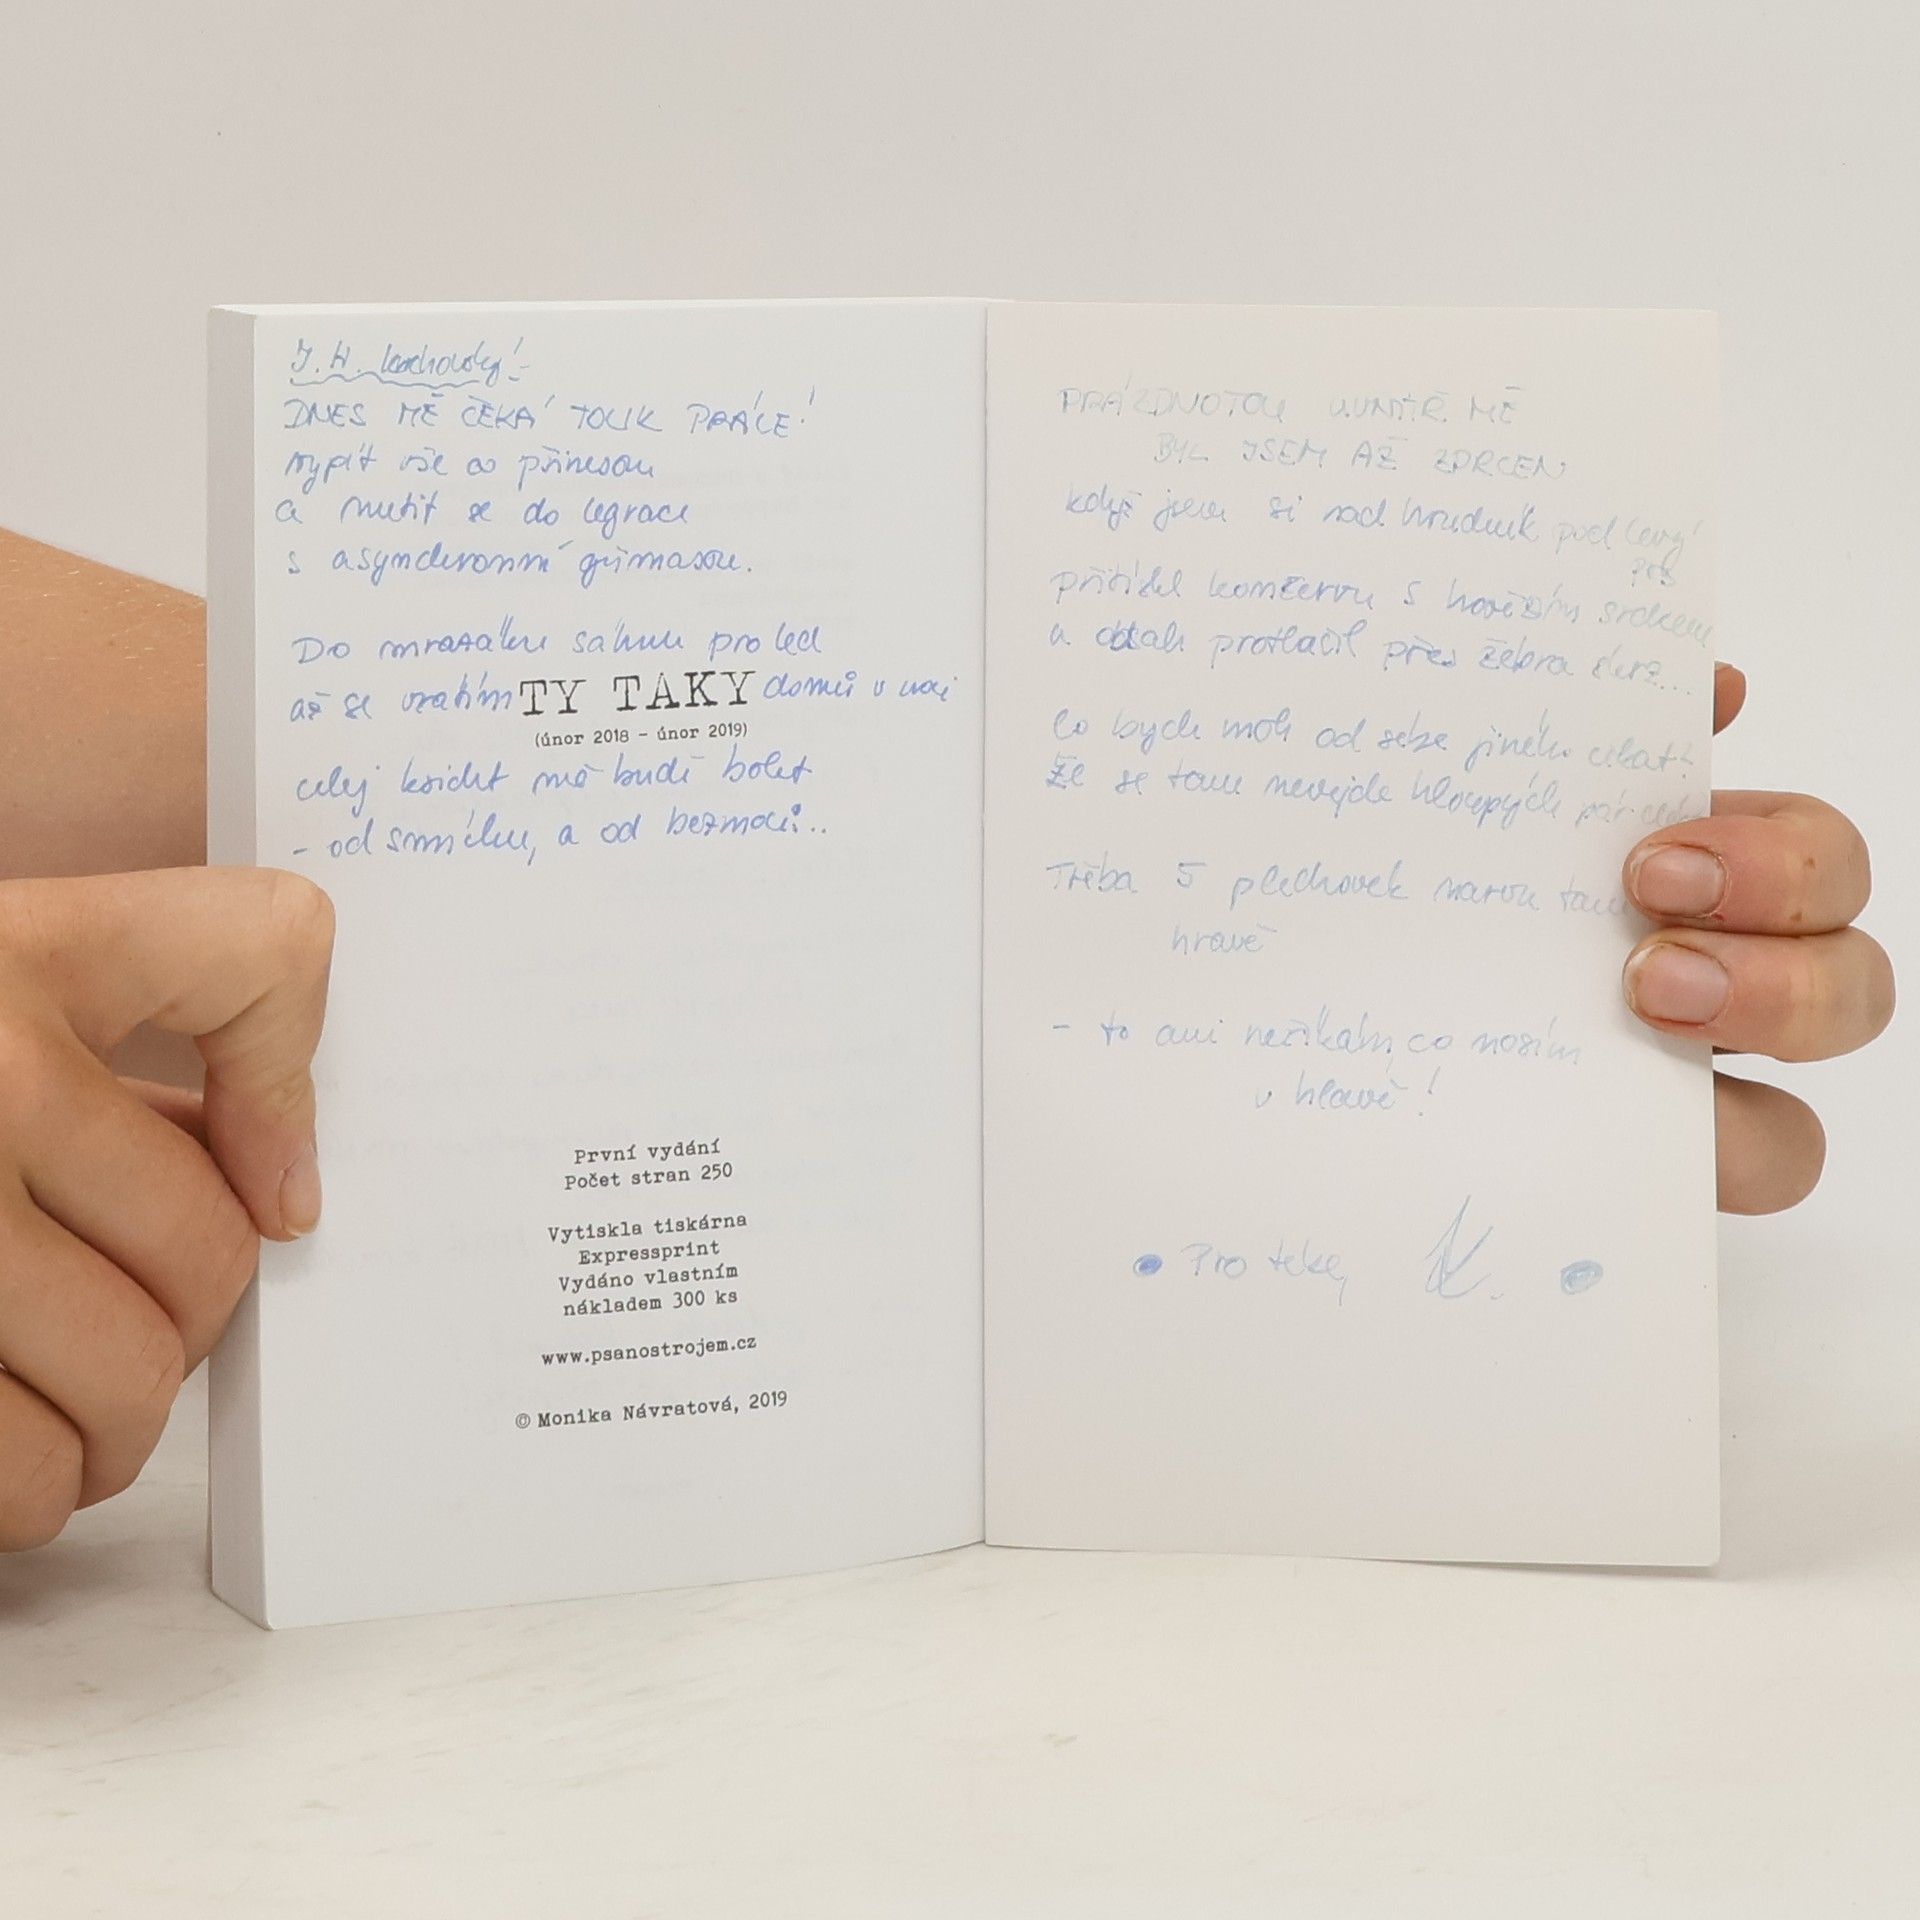 J. H. Kochovský:
DNES MĚ ČEKÁ TOLIK PRÁCE!
vypít vše co přinesou
a nutit se do legrace
s asynchronní grimasou.
Do mrazáku sáhnu pro led
až se vrátím TY TAKY domů v noci
(únor 2018 - únor 2019)
celej ksicht mě budě bolet
- od smíchu, a od bezmoci...
První vydání
Počet stran 250
Vytiskla tiskárna
Expressprint
Vydáno vlastním
nákladem 300 ks
www.psanostrojem.cz
© Monika Návratová, 2019
PRÁZDNOTOU UVNITŘ MĚ
BYL JSEM AŽ ZDRCEN
když jsem si nad hrudník pod levý
prs
přitiskl konzervu s hovězím srdcem
a obsah protlačil přes žebra skrz...
Co bych moh od sebe jiného čekat?
Že se tam nevejde hloupých pár
Třeba 5 plechovek narvu tam
hravě
- to ani neříkám, co nosím
v hlavě!
Pro tebe,